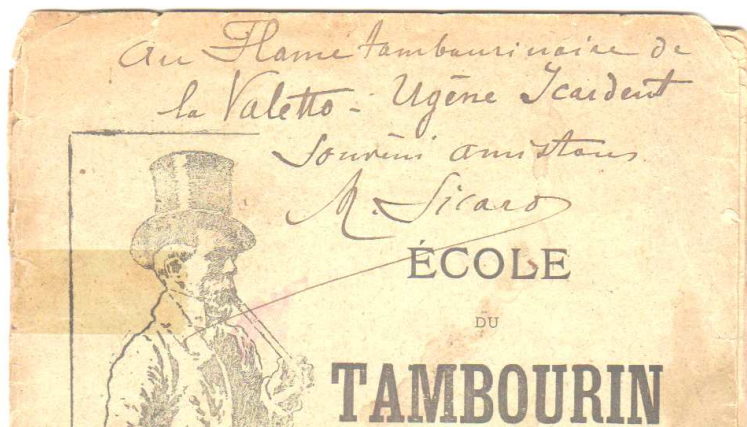 au Flame tambourinaire de
la Valetto - Ugène Icardent
Souveni amistous
M. Sicard
ÉCOLE
DU
TAMBOURIN